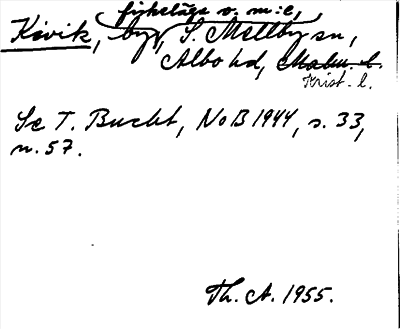 fiskeläge s. m:e,
Kivik, by, S. Mellby sn,
Albo hd, Malm. l.
Krist. l.
Se T. Bucht, NoB 1944, s. 33,
n. 57.
Th. A. 1955.